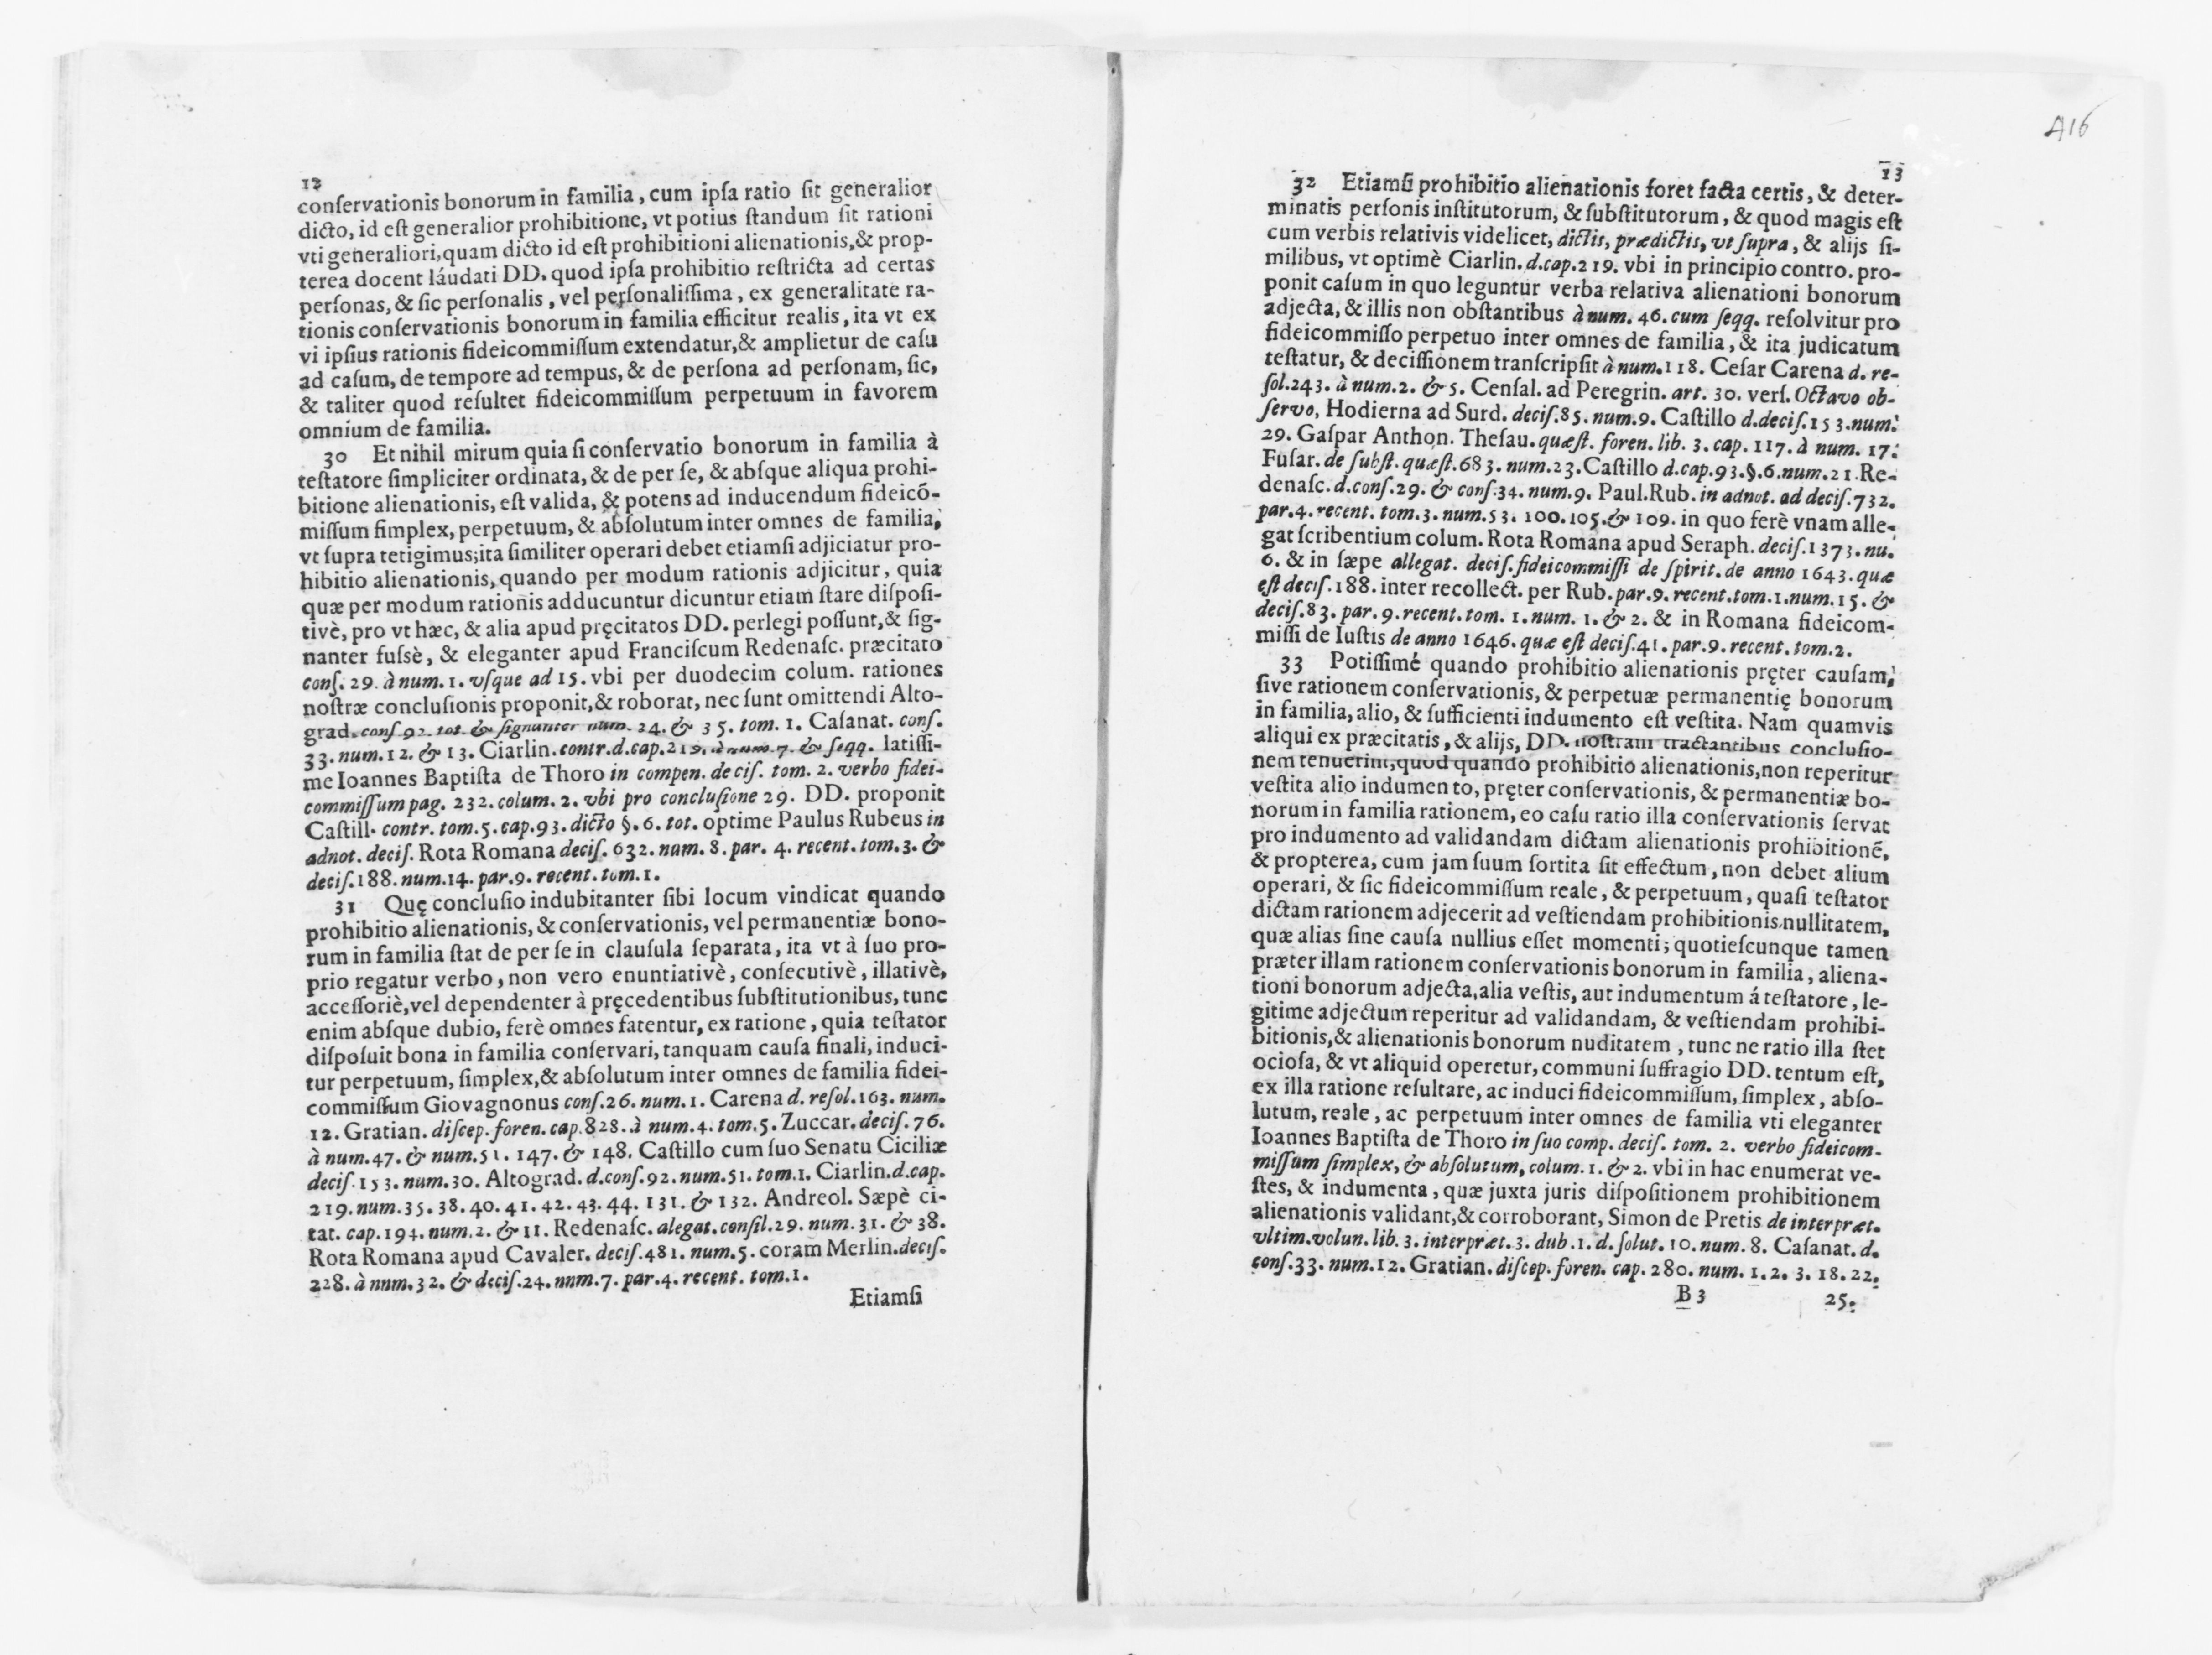 12
conſervationis bonorum in familia, cum ipſa ratio ſit generalior
dicto, id eſt generalior prohibitione, vt potius ſtandum ſit rationi
vti generaliori, quam dicto id eſt prohibitioni alienationis, & prop-
terea docent láudati DD. quod ipſa prohibitio reſtricta ad certas
perſonas, & ſic perſonalis, vel perſonaliſſima, ex generalitate ra-
tionis conſervationis bonorum in familia efficitur realis, ita vt ex
vi ipſius rationis fideicommiſſum extendatur, & amplietur de caſu
ad caſum, de tempore ad tempus, & de perſona ad perſonam, ſic,
& taliter quod reſultet fideicommiſſum perpetuum in favorem
omnium de familia.
30 Et nihil mirum quia ſi conſervatio bonorum in familia à
teſtatore ſimpliciter ordinata, & de per ſe, & abſque aliqua prohi-
bitione alienationis, eſt valida, & potens ad inducendum fideicõ-
miſſum ſimplex, perpetuum, & abſolutum inter omnes de familia,
vt ſupra tetigimus; ita ſimiliter operari debet etiamſi adjiciatur pro-
hibitio alienationis, quando per modum rationis adjicitur, quia
quæ per modum rationis adducuntur dicuntur etiam ſtare diſpoſi-
tivè, pro vt hæc, & alia apud pręcitatos DD. perlegi poſſunt, & ſig-
nanter fuſsè, & eleganter apud Franciſcum Redenaſc. præcitato
conſ. 29. à num. 1. vſque ad 15. vbi per duodecim colum. rationes
noſtræ concluſionis proponit, & roborat, nec ſunt omittendi Alto-
grad. conſ. 92. tot. & ſignanter num. 34. & 35. tom. 1. Caſanat. conſ.
33. num. 12. & 13. Ciarlin. contr. d. cap. 219. à num. 7. & ſeqq. latiſſi-
me Ioannes Baptiſta de Thoro in compen. deciſ. tom. 2. verbo fidei-
commiſſum pag. 232. colum. 2. vbi pro concluſione 29. DD. proponit
Caſtill. contr. tom. 5. cap. 93. dicto §. 6. tot. optime Paulus Rubeus in
adnot. deciſ. Rota Romana deciſ. 632. num. 8. par. 4. recent. tom. 3. &
deciſ. 188. num. 14. par. 9. recent. tom. 1.
31 Quę concluſio indubitanter ſibi locum vindicat quando
prohibitio alienationis, & conſervationis, vel permanentiæ bono-
rum in familia ſtat de per ſe in clauſula ſeparata, ita vt à ſuo pro-
prio regatur verbo, non vero enuntiativè, conſecutivè, illativè,
acceſſoriè, vel dependenter à pręcedentibus ſubſtitutionibus, tunc
enim abſque dubio, ferè omnes fatentur, ex ratione, quia teſtator
diſpoſuit bona in familia conſervari, tanquam cauſa finali, induci-
tur perpetuum, ſimplex, & abſolutum inter omnes de familia fidei-
commiſſum Giovagnonus conſ. 26. num. 1. Carena d. reſol. 163. num.
12. Gratian. diſcep. foren. cap. 828. à num. 4. tom. 5. Zuccar. deciſ. 76.
à num. 47. & num. 51. 147. & 148. Caſtillo cum ſuo Senatu Ciciliæ
deciſ. 153. num. 30. Altograd. d. conſ. 92. num. 51. tom. 1. Ciarlin. d. cap.
219. num. 35. 38. 40. 41. 42. 43. 44. 131. & 132. Andreol. Sæpè ci-
tat. cap. 194. num. 2. & 11. Redenaſc. alegat. conſil. 29. num. 31. & 38.
Rota Romana apud Cavaler. deciſ. 481. num. 5. coram Merlin. deciſ.
228. à nnm. 32. & deciſ. 24. nnm. 7. par. 4. recent. tom. 1.
Etiamſi
A16
13
32 Etiamſi prohibitio alienationis foret facta certis, & deter-
minatis perſonis inſtitutorum, & ſubſtitutorum, & quod magis eſt
cum verbis relativis videlicet, dictis, prædictis, vt ſupra, & alijs ſi-
milibus, vt optimè Ciarlin. d. cap. 219. vbi in principio contro. pro-
ponit caſum in quo leguntur verba relativa alienationi bonorum
adjecta, & illis non obſtantibus à num. 46. cum ſeqq. reſolvitur pro
fideicommiſſo perpetuo inter omnes de familia, & ita judicatum
teſtatur, & deciſſionem tranſcripſit à num. 118. Ceſar Carena d. re-
ſol. 243. à num. 2. & 5. Cenſal. ad Peregrin. art. 30. verſ. Octavo ob-
ſervo, Hodierna ad Surd. deciſ. 85. num. 9. Caſtillo d. deciſ. 153. num.
29. Gaſpar Anthon. Theſau. quæſt. foren. lib. 3. cap. 117. à num. 17.
Fuſar. de ſubſt. quæſt. 683. num. 23. Caſtillo d. cap. 93. §. 6. num. 21. Re-
denaſc. d. conſ. 29. & conſ. 34. num. 9. Paul. Rub. in adnot. ad deciſ. 732.
par. 4. recent. tom. 3. num. 53. 100. 105. & 109. in quo ferè vnam alle-
gat ſcribentium colum. Rota Romana apud Seraph. deciſ. 1373. nu.
6. & in ſæpe allegat. deciſ. fideicommiſſi de ſpirit. de anno 1643. quæ
eſt deciſ. 188. inter recollect. per Rub. par. 9. recent. tom. 1. num. 15. &
deciſ. 83. par. 9. recent. tom. 1. num. 1. & 2. & in Romana fideicom-
miſſi de Iuſtis de anno 1646. quæ eſt deciſ. 41. par. 9. recent. tom. 2.
33 Potiſſimé quando prohibitio alienationis pręter cauſam,
ſive rationem conſervationis, & perpetuæ permanentię bonorum
in familia, alio, & ſufficienti indumento eſt veſtita. Nam quamvis
aliqui ex præcitatis, & alijs, DD. noſtram tractantibus concluſio-
nem tenuerint, quod quando prohibitio alienationis, non reperitur
veſtita alio indumento, pręter conſervationis, & permanentiæ bo-
norum in familia rationem, eo caſu ratio illa conſervationis ſervat
pro indumento ad validandam dictam alienationis prohibitionẽ,
& propterea, cum jam ſuum ſortita ſit effectum, non debet alium
operari, & ſic fideicommiſſum reale, & perpetuum, quaſi teſtator
dictam rationem adjecerit ad veſtiendam prohibitionis nullitatem,
quæ alias ſine cauſa nullius eſſet momenti; quotieſcunque tamen
præter illam rationem conſervationis bonorum in familia, aliena-
tioni bonorum adjecta, alia veſtis, aut indumentum á teſtatore, le-
gitime adjectum reperitur ad validandam, & veſtiendam prohibi-
bitionis, & alienationis bonorum nuditatem, tunc ne ratio illa ſtet
ocioſa, & vt aliquid operetur, communi ſuffragio DD. tentum eſt,
ex illa ratione reſultare, ac induci fideicommiſſum, ſimplex, abſo-
lutum, reale, ac perpetuum inter omnes de familia vti eleganter
Ioannes Baptiſta de Thoro in ſuo comp. deciſ. tom. 2. verbo fideicom-
miſſum ſimplex, & abſolutum, colum. 1. & 2. vbi in hac enumerat ve-
ſtes, & indumenta, quæ juxta juris diſpoſitionem prohibitionem
alienationis validant, & corroborant, Simon de Pretis de interpræt.
vltim. volun. lib. 3. interpræt. 3. dub. 1. d. ſolut. 10. num. 8. Caſanat. d.
conſ. 33. num. 12. Gratian. diſcep. foren. cap. 280. num. 1. 2. 3. 18. 22.
B 3 25.